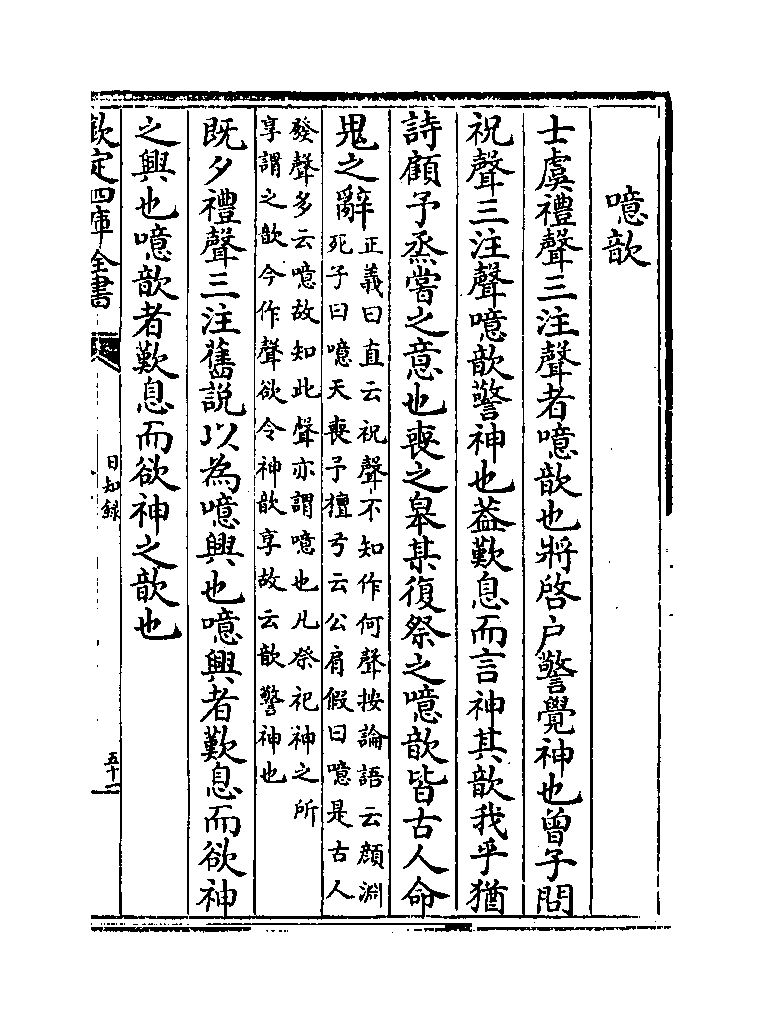 噫歆
士虞禮聲三注聲者噫歆也將啓户警覺神也曾子問
祝聲三注聲噫歆警神也葢歎息而言神其歆我乎猶
詩顧予烝嘗之意也喪之皋某復祭之噫歆皆古人命
鬼之辭正義曰直云祝聲不知作何聲按論語云顔淵
死子曰噫天喪予檀弓云公肩假曰噫是古人
發聲多云噫故知此聲亦謂噫也凡祭祀神之所
享謂之歆今作聲欲令神歆享故云歆警神也
既夕禮聲三注舊説以為噫興也噫興者歎息而欲神
之興也噫歆者歎息而欲神之歆也
欽定四庫全書
日知録
五十一